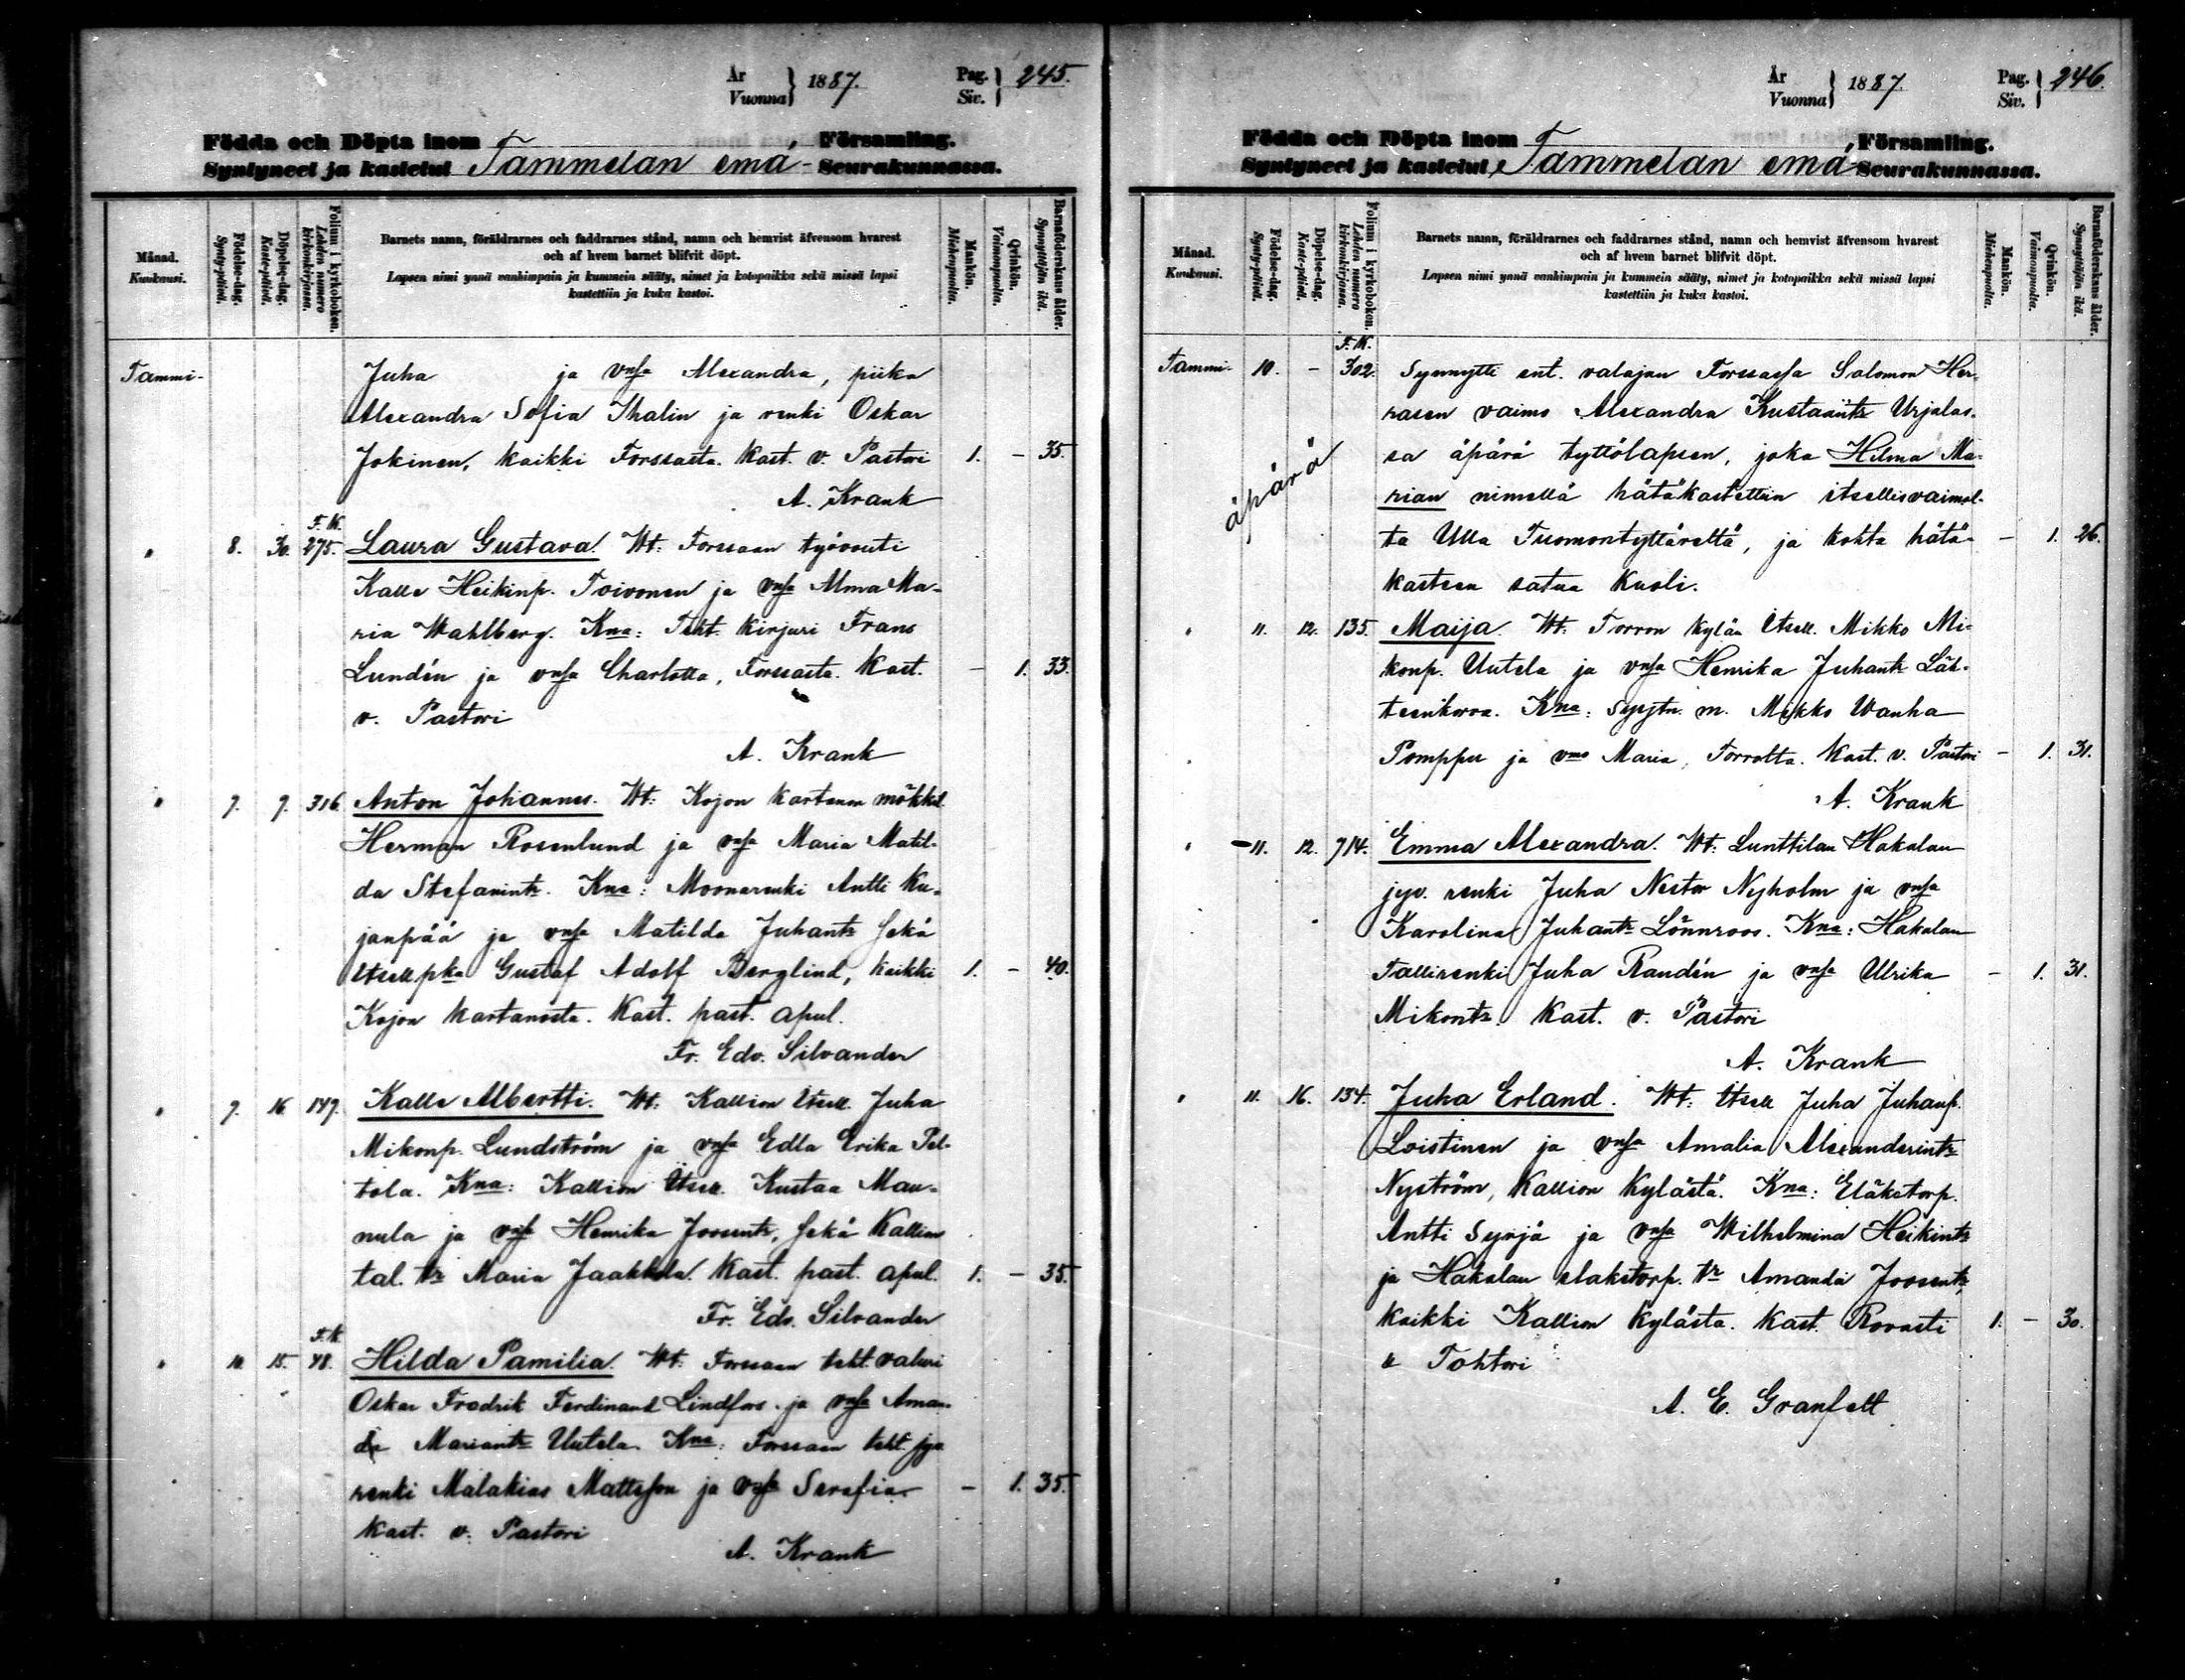 År
Vuonna } 1887. Pag.
Siv. } 245.
Födda och Döpta inom Församling.
Syntyneet ja kastetut Tammelan emä- Seurakunnassa.
Månad.
Kuukausi.
Födelse-dag.
Synty-päivä.
Döpelse-dag.
Kaste-päivä.
Folium i kyrkoboken.
Lehden numero kirkonkirjassa.
Barnets namn, föräldrarnes och faddrarnes stånd, namn och hemvist äfvensom hvarest
och af hvem barnet blifvit döpt.
Lapsen nimi ynnä vanhimpain ja kummein sääty, nimet ja kotopaikka sekä missä lapsi
kastettiin ja kuka kastoi.
Mankön.
Miehenpuolta.
Qvinkön.
Vaimonpuolta.
Barnaföderskans ålder.
Synnyttäjän ikä.
Tammi- Juha ja vnsa Alexandra, piika
Alexandra Sofia Thalin ja renki Oskar
Jokinen, kaikki Forssasta. Kast. v. Pastori 1. - 35.
A. Krank
F. K.
" 8. 30. 275. Laura Gustava. Wt: Forssaan työvouti
Kalle Heikinp. Toivonen ja vnsa Alma Ma-
ria Wahlberg. Kna: Teht. kirjuri Frans
Lundén ja vnsa Charlotta, Forssasta. Kast. - 1. 33.
v. Pastori
A. Krank
" 9. 9. 316. Anton Johannes. Wt: Kojon kartanon mökkil.
Herman Rosenlund ja vnsa Maria Matil-
da Stefanintr. Kna: Moonarenki Antti Ku-
janpää ja vnsa Matilda Juhantr sekä
Itsell pka Gustaf Adolf Berglind, kaikki 1. - 40.
Kojon kartanosta. Kast. past. apul.
Fr. Edv. Silvander
" 9. 16. 149. Kalle Albertti. Wt: Kallion Itsell. Juha
Mikonp. Lundström ja vnsa Edla Erika Pel-
tola. Kna: Kallion Itsell. Kustaa Man-
nula ja vnsa Henrika Joosentr, sekä Kallion
tal. tr Maria Jaakkola. Kast. past. apul. 1. - 35.
Fr. Edv. Silvander
F. K.
" 10. 15. 48. Hilda Pamilia. Wt: Forssaan teht. valuri
Oskar Fredrik Ferdinand Lindfors ja vnsa Aman-
da Mariantr Uutela. Kna: Forssaan teht. jyv.
renki Malakias Mattsson ja vnsa Serafia. - 1. 35.
Kast. v. Pastori
A. Krank
År
Vuonna } 1887. Pag.
Siv. } 246.
Födda och Döpta inom Församling.
Syntyneet ja kastetut Tammelan emä- Seurakunnassa.
Månad.
Kuukausi.
Födelse-dag.
Synty-päivä.
Döpelse-dag.
Kaste-päivä.
Folium i kyrkoboken.
Lehden numero kirkonkirjassa.
Barnets namn, föräldrarnes och faddrarnes stånd, namn och hemvist äfvensom hvarest
och af hvem barnet blifvit döpt.
Lapsen nimi ynnä vanhimpain ja kummein sääty, nimet ja kotopaikka sekä missä lapsi
kastettiin ja kuka kastoi.
Mankön.
Miehenpuolta.
Qvinkön.
Vaimonpuolta.
Barnaföderskans ålder.
Synnyttäjän ikä.
F. K.
Tammi- 10. - 302. Synnytti ent. valajan Forssassa Salomon Her-
rasen vaimo Alexandra Kustaantr Urjalas-
sa äpärä tyttölapsen, joka Hilma Ma-
äpärä
rian nimellä hätäkastettiin itsellisvaimol-
ta Ulla Tuomontyttäreltä, ja kohta hätä- - 1. 26.
kasteen satua kuoli.
" 11. 12. 135. Maija. Wt: Torron kylän Itsell. Mikko Mi-
konp. Uutela ja vnsa Henrika Juhantr Läh-
teenkorva. Kna: Syytn. m. Mikko Wanha
Pomppu ja vmo Maria, Torrolta. Kast. v. Pastori - 1. 31.
A. Krank
" 11. 12. 714. Emma Alexandra. Wt: Lunttilan Hakalan
jyv. renki Juha Nestor Nyholm ja vnsa
Karolina Juhantr Lönnroos. Kna: Hakalan
Tallirenki Juha Randén ja vnsa Ulrika - 1. 31.
Mikontr. Kast. v. Pastori
A. Krank
" 11. 16. 134. Juha Erland. Wt: Itsell Juha Juhanp.
Loistinen ja vnsa Amalia Alexanderintr
Nyström, Kallion kylästä. Kna: Eläketorp.
Antti Syrjä ja vnsa Wilhelmina Heikintr
ja Hakalan elaketorp. tr Amanda Joosentr,
kaikki Kallion kylästä. Kast. Rovasti 1. - 30.
u Tohtori
A. E. Granfelt